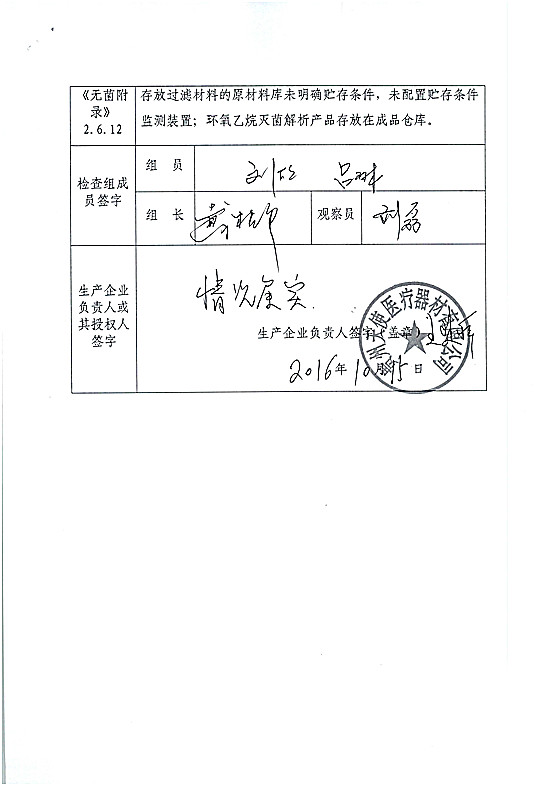 《无菌附录》
2.6.12
存放过滤材料的原材料库未明确贮存条件，未配置贮存条件
监测装置；环氧乙烷灭菌解析产品存放在成品仓库。
检查组成
员签字
组 员
组 长
观察员
刘磊
生产企业
负责人或
其授权人
签字
情况属实
生产企业负责人签字（盖章）
州天使医疗器材有限公司
2016年10月15日